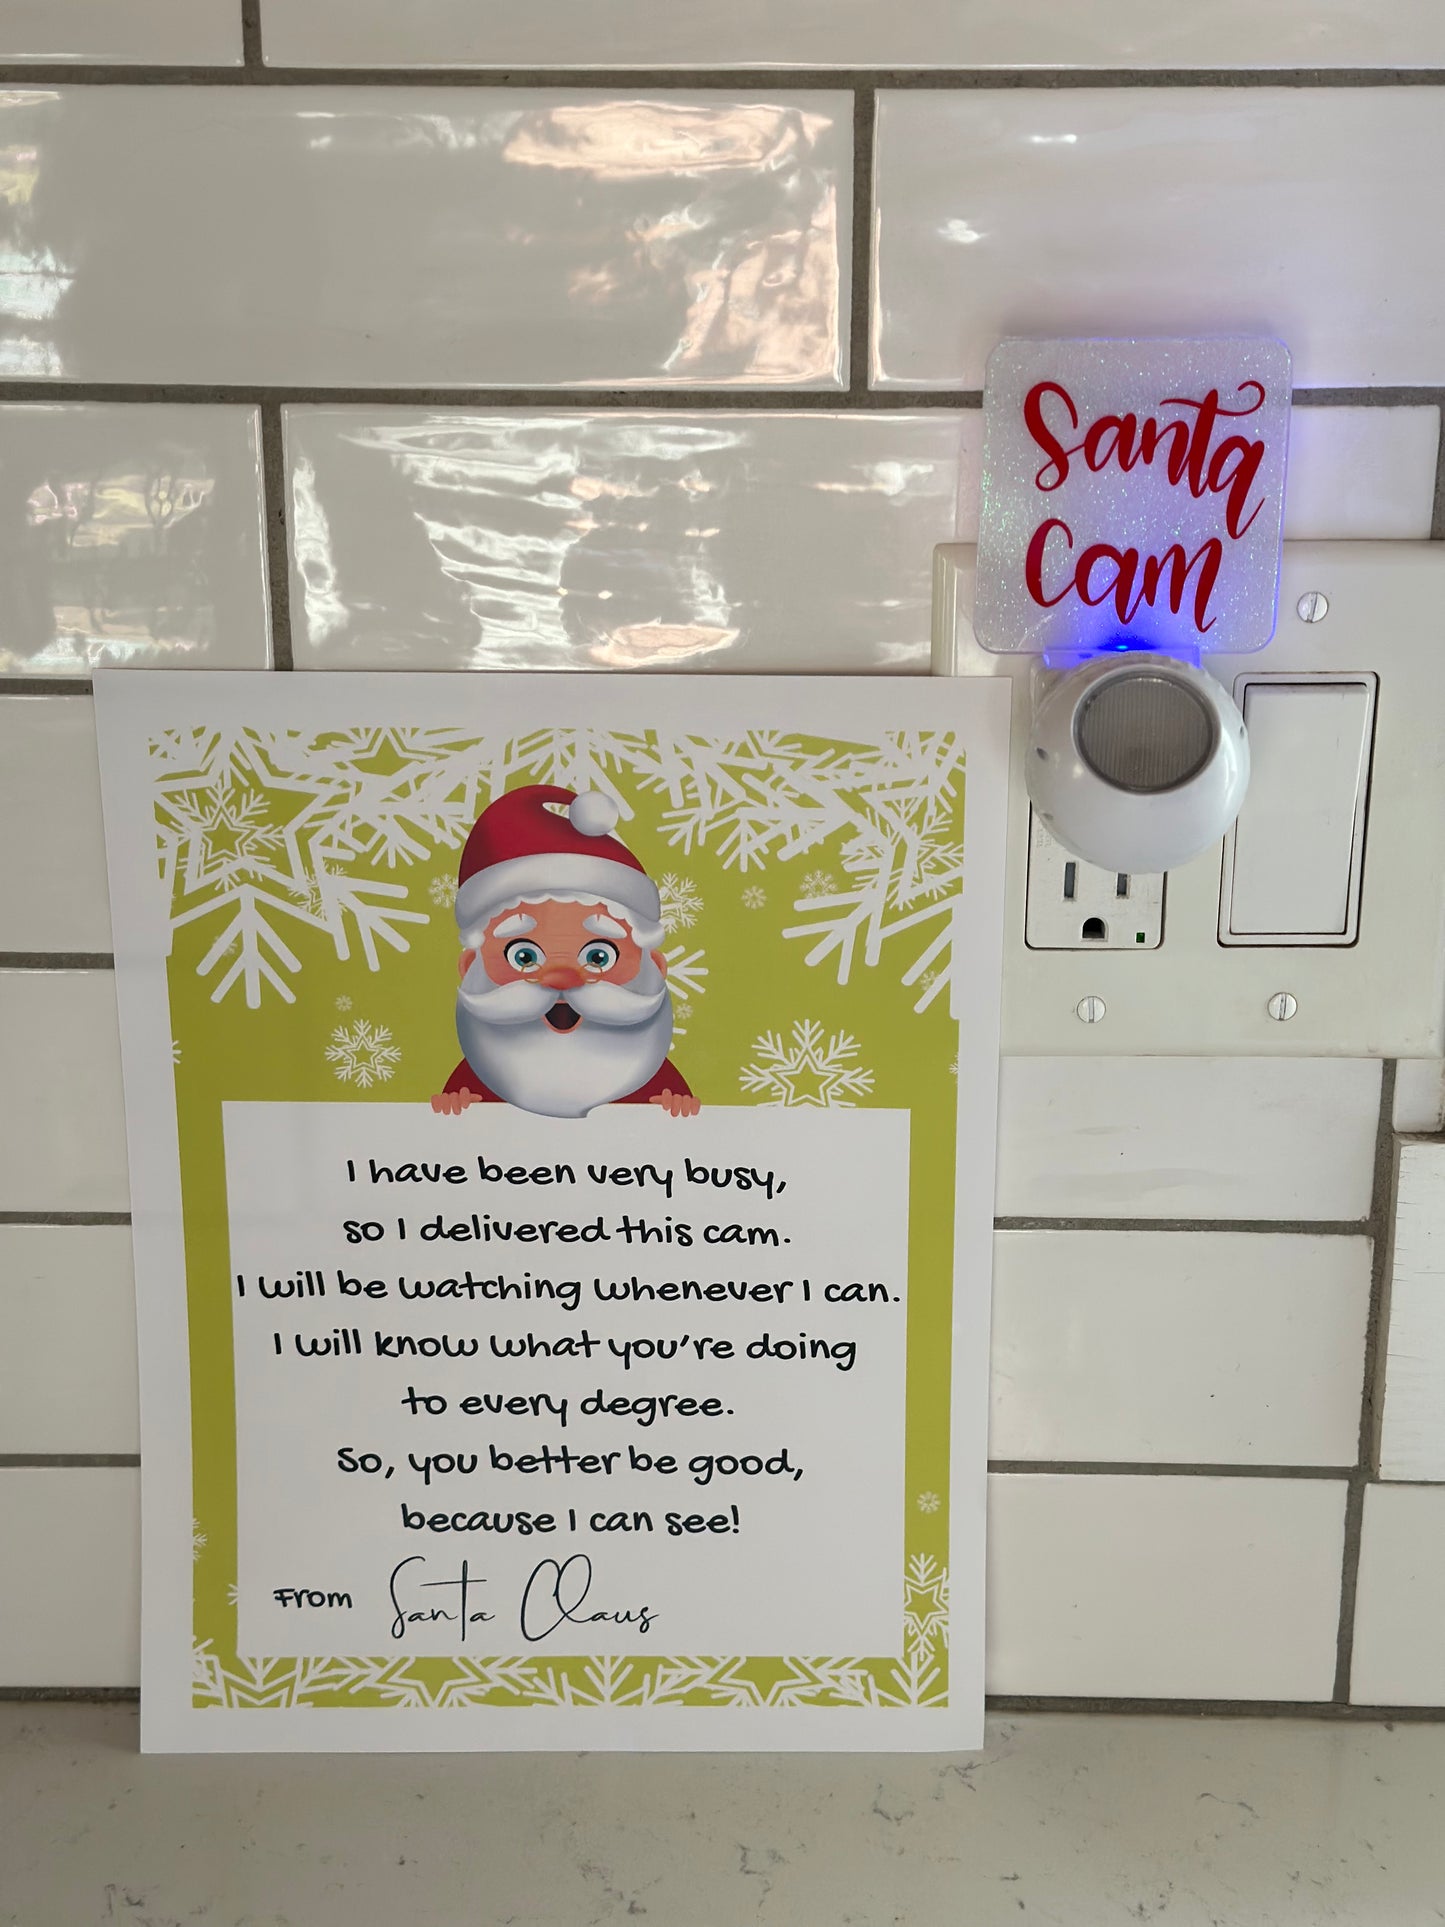 Santa
Cam
I have been very busy,
so I delivered this cam.
I will be watching whenever I can.
I will know what you're doing
to every degree.
So, you better be good,
because I can see!
From Santa Claus